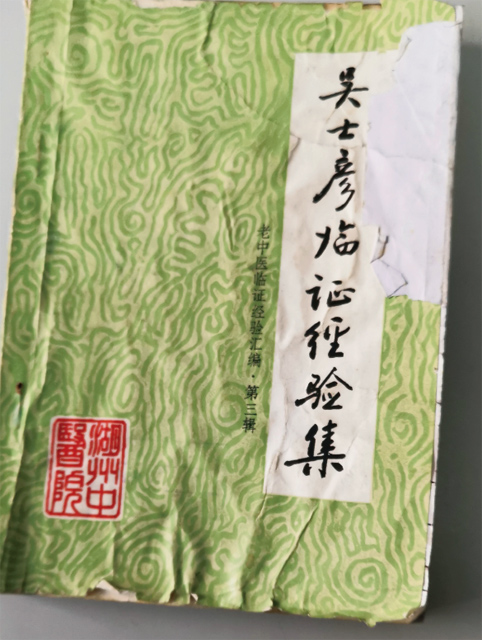 吴士彦临证经验集
老中医临证经验汇编·第三辑
湖州中
醫院